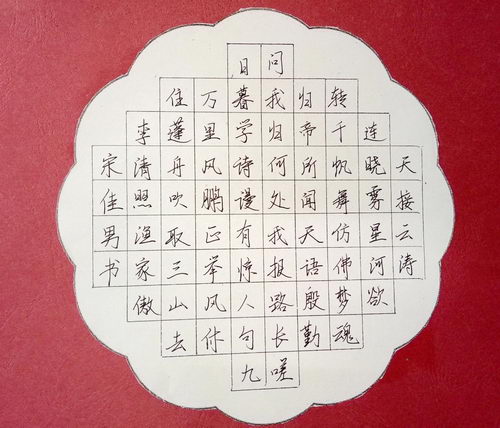 天接云涛
连晓雾星河欲
转千帆舞仿佛梦魂
归帝所闻天语殷勤
问我归何处我报路长嗟
日暮学诗谩有惊人句九
万里风鹏正举风休
住蓬舟吹取三山去
李清照渔家傲
宋佳男书